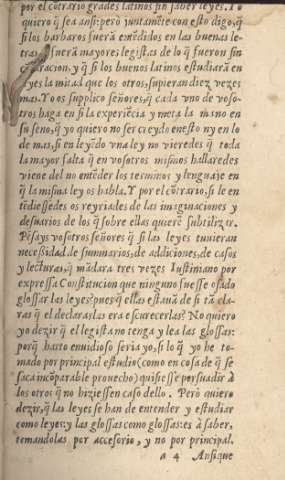 por el cõtrario grades latinos sin saber leyes. Yo
quiero q̃ sea ansi: pero juntamẽte con esto digo, q̃
si los barbaros fuerã entẽdidos en las buenas le-
tras, fuerã mayores legistas de lo q̃ fueron sin
comparacion, y q̃ si los buenos latinos estudiarã en
leyes la mitad que los otros, supieran diez vezes
mas. Yo os supplico señores, q̃ cada vno de voso-
tros haga en si la experiẽcia y meta la mano en
su seno, q̃ yo quiero no ser creydo en esto ny en lo
de mas, si en leyẽdo vna ley no vieredes q̃ toda
la mayor falta q̃ en vosotros mismos hallaredes
viene del no entẽder los terminos y lenguaje en
q̃ la misma ley os habla. Y por el cõtrario, si le en
tẽdiessedes os reyriades de las imaginaciones y
desuarios de los q̃ sobre ellas quierẽ subtilizar.
Pẽsays vosotros señores q̃ si las leyes tuuieran
necessidad de summarios, de addiciones, de casos
y lecturas, q̃ mãdara tres vezes Iustiniano por
expressa Constitucion que ninguno fuesse osado
glossar las leyes? pues q̃ ellas estauã de si tã cla-
ras q̃ el declararlas era escurecerlas? No quiero
yo dezir q̃ el legista no tenga y lea las glossas:
porq̃ harto envidioso seria yo, si lo q̃ yo he to-
mado por principal estudio (como en cosa de q̃ se
saca incõparable prouecho) quisiesse persuadir à
los otros q̃ no hiziessen caso dello. Però quiero
dezir, q̃ las leyes se han de entender y estudiar
como leyes: y las glossas como glossas: es à saber,
tomandolas por accesorio, y no por principal.
a 4 Ansi que